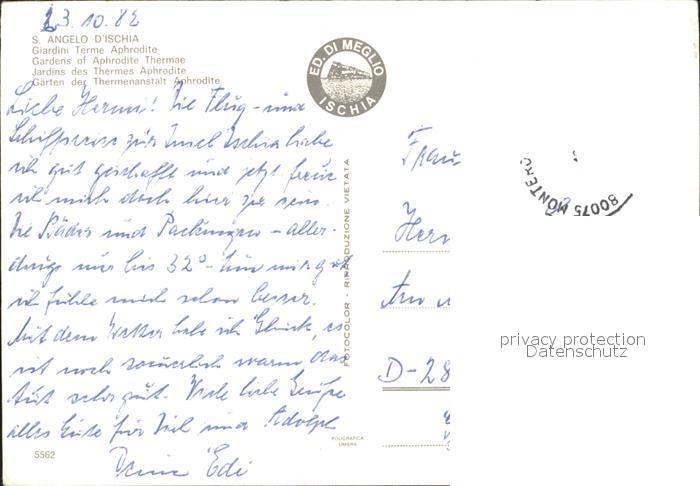 23.10.82
S. ANGELO D'ISCHIA
Giardini Terme Aphrodite
Gardens of Aphrodite Thermae
Jardins des Thermes Aphrodite
Gärten der Thermenanstalt Aphrodite
ED. DI MEGLIO
ISCHIA
Liebe Hermi! Die Flug- und
Schiffsreise zur Insel Ischia habe
ich gut geschafft und jetzt freue
ich mich doch hier zu sein.
Die Bäder und Packungen - aller-
dings nur bis 32° - tun mir gut
ich fühle mich schon besser.
Mit dem Wetter habe ich Glück, es
ist noch sommerlich warm das
tut sehr gut. Viele liebe Grüße
alles Gute für Dich und Adolph
Deine Edi
5562
FOTOCOLOR - RIPRODUZIONE VIETATA
POLIGRAFICA
UMBRA
80075 MONTERO
Frau
Her
D-28
privacy protection
Datenschutz